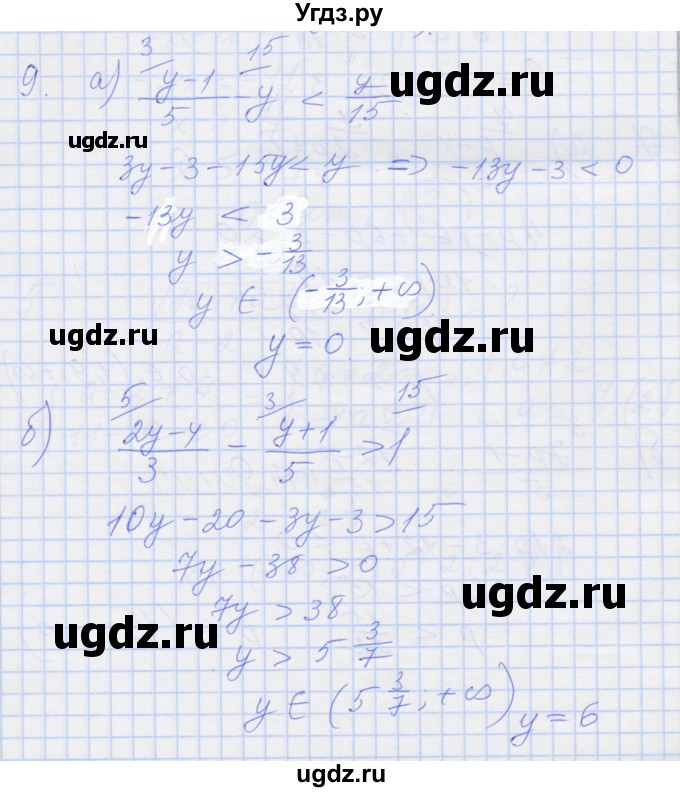 Угдз.ру
9. а) (y-1)/5 ^3 - y ^15 < y/15
ugdz.ru
ugdz.ru
3y - 3 - 15y < y. => -13y - 3 < 0
-13y < 3
y > -3/13
y ∈ (-3/13; +∞)
ugdz.ru
ugdz.ru
y = 0.
б) (2y-4)/3 ^5 - (y+1)/5 ^3 > 1 ^15
10y - 20 - 3y - 3 > 15
7y - 38 > 0
ugdz.ru
7y > 38
ugdz.ru
y > 5 3/7
y ∈ (5 3/7; +∞) y = 6
ugdz.ru